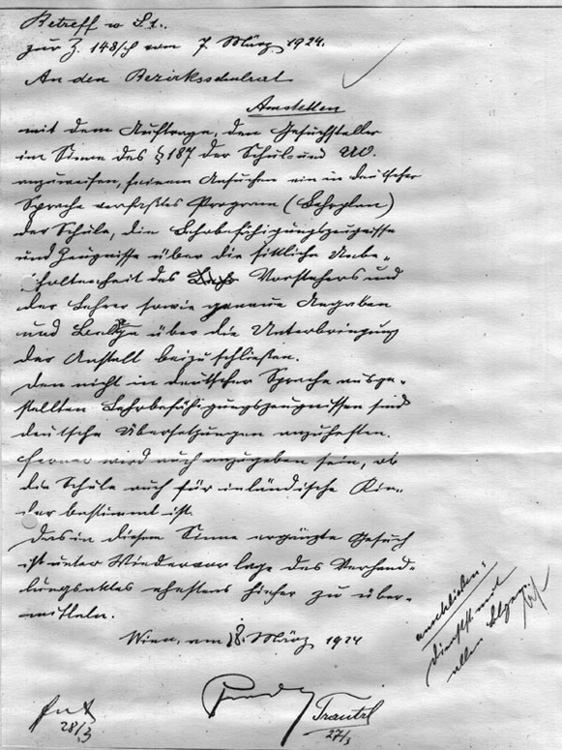 Betreff w S 1.
zur Z. 148/ch vom 7. März 1924.
An den Bezirksschulrat
Amstetten
mit dem Auftrage, den Gesuchsteller
im Sinne des § 187 der Schul und UO.
anzuweisen, seinem Ansuchen ein in deutscher
Sprache verfaßtes Program (Lehrplan)
der Schule, die Lehrbefähigungszeugnisse
und Zeugnisse über die sittliche Unbe-
scholtenheit des Vorstehers und
der Lehrer sowie genaue Angaben
und Belege über die Unterbringung
der Anstalt beizuschließen.
Den nicht in deutscher Sprache ausge-
stellten Lehrbefähigungszeugnissen sind
deutsche Übersetzungen anzuheften.
Ferner wird noch anzugeben sein, ob
die Schule auch für inländische Kin-
der bestimmt ist.
Das in diesem Sinne ergänzte Gesuch
ist unter Wiedervorlage des Verhand-
lungsaktes ehestens hieher zu über-
mitteln.
Wien, am 28. März 1924
anschließen:
mit
allen
Trautzl
27/3
28/3